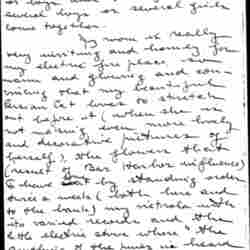 or boys and
several boys or several girls
come together.
My room is really
very inviting and homey from
my electric fire place, so
warm and glowing and con-
vincing that my beautiful
Persian Cat loves to stretch
out before it (when she is
not making even more lovely
and decorative pictures of
herself), the flowers that
(result of Bar Harbor influence)
I have sent by standing order
twice a week (both here and
to the ), my victrola with
its various records and the
little electric stove where "the
of the